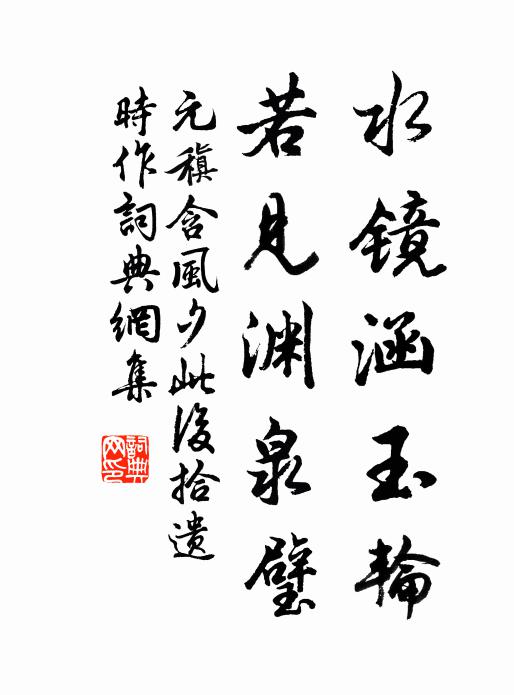 水镜涵玉輪
若見渊泉璧
元稹含風夕此後拾遺
時作詞典網集
詞典
网印